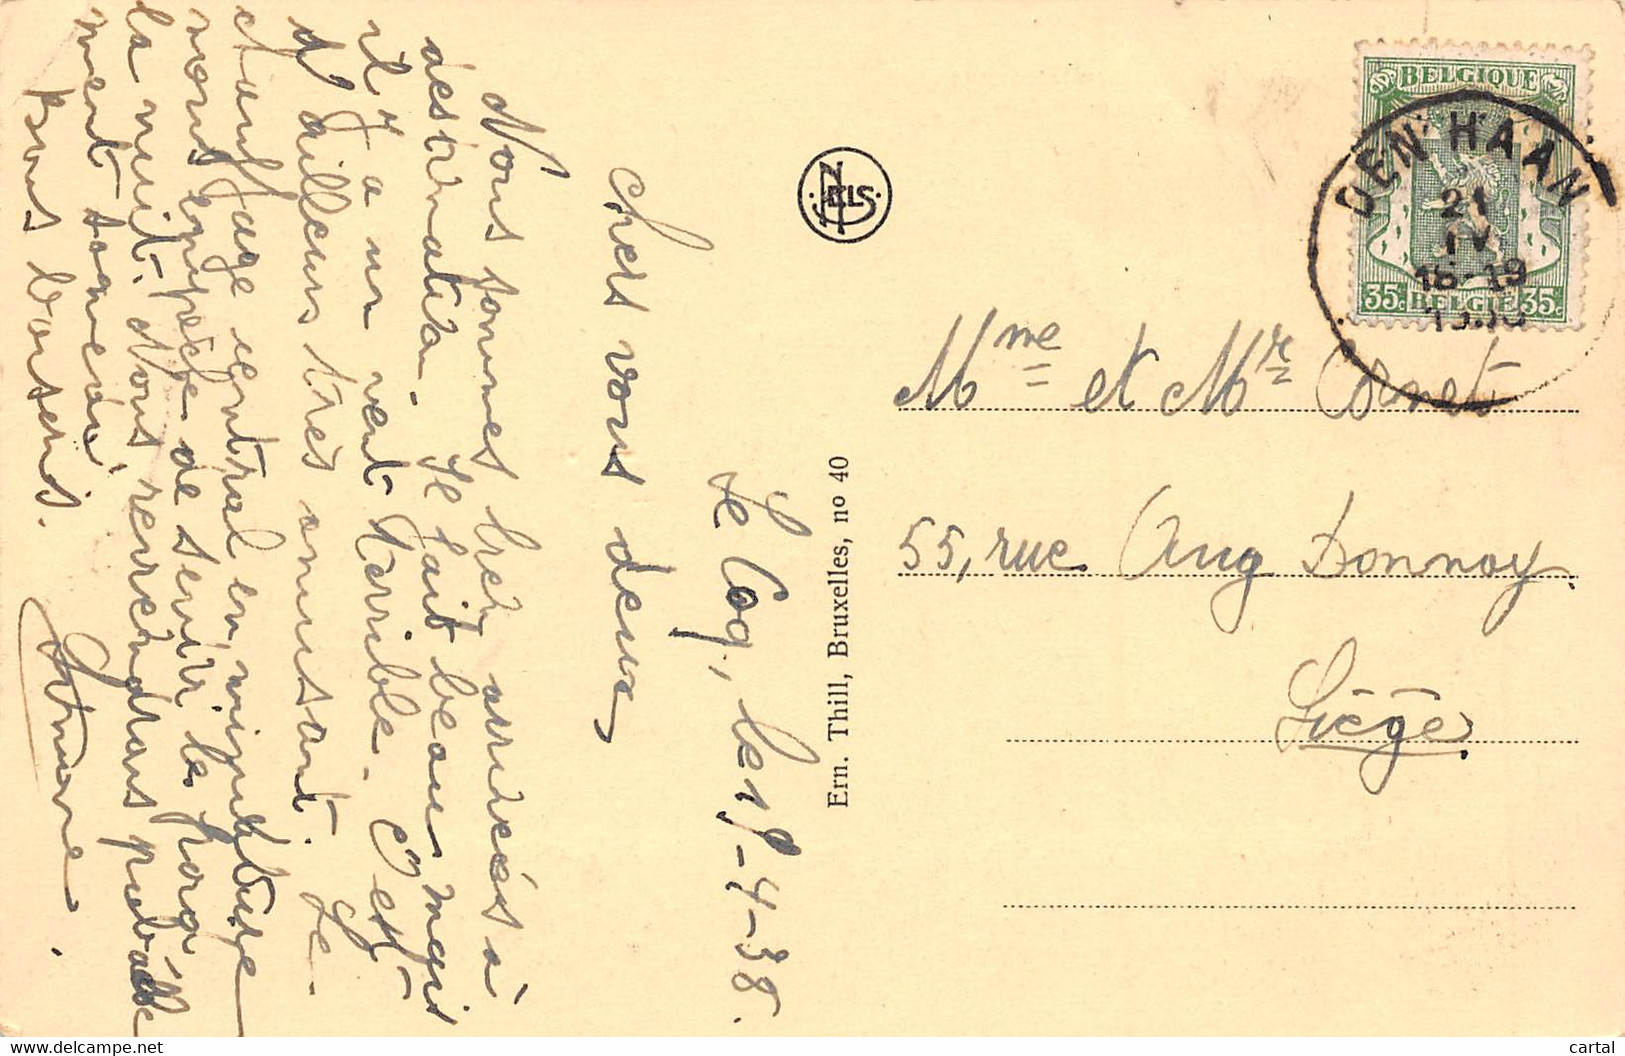 Le Coq, le 19-4-38.
Chers vous deux
Nous sommes bien arrivés à
destination. Il fait beau mais
il y a un vent terrible. C'est
d'ailleurs très amusant. Le
chauffage central en miniature
nous empêche de sentir le froid
la nuit. Nous reviendrons probable
ment samedi
Bons baisers.
Ern. Thill, Bruxelles, no 40
NELS
BELGIQUE
35c BELGIË 35c
DEN HAAN
21
IV
18-19
1938
Mme et Mr Cornet
55, rue Aug Donnay
Liège
www.delcampe.net
cartal